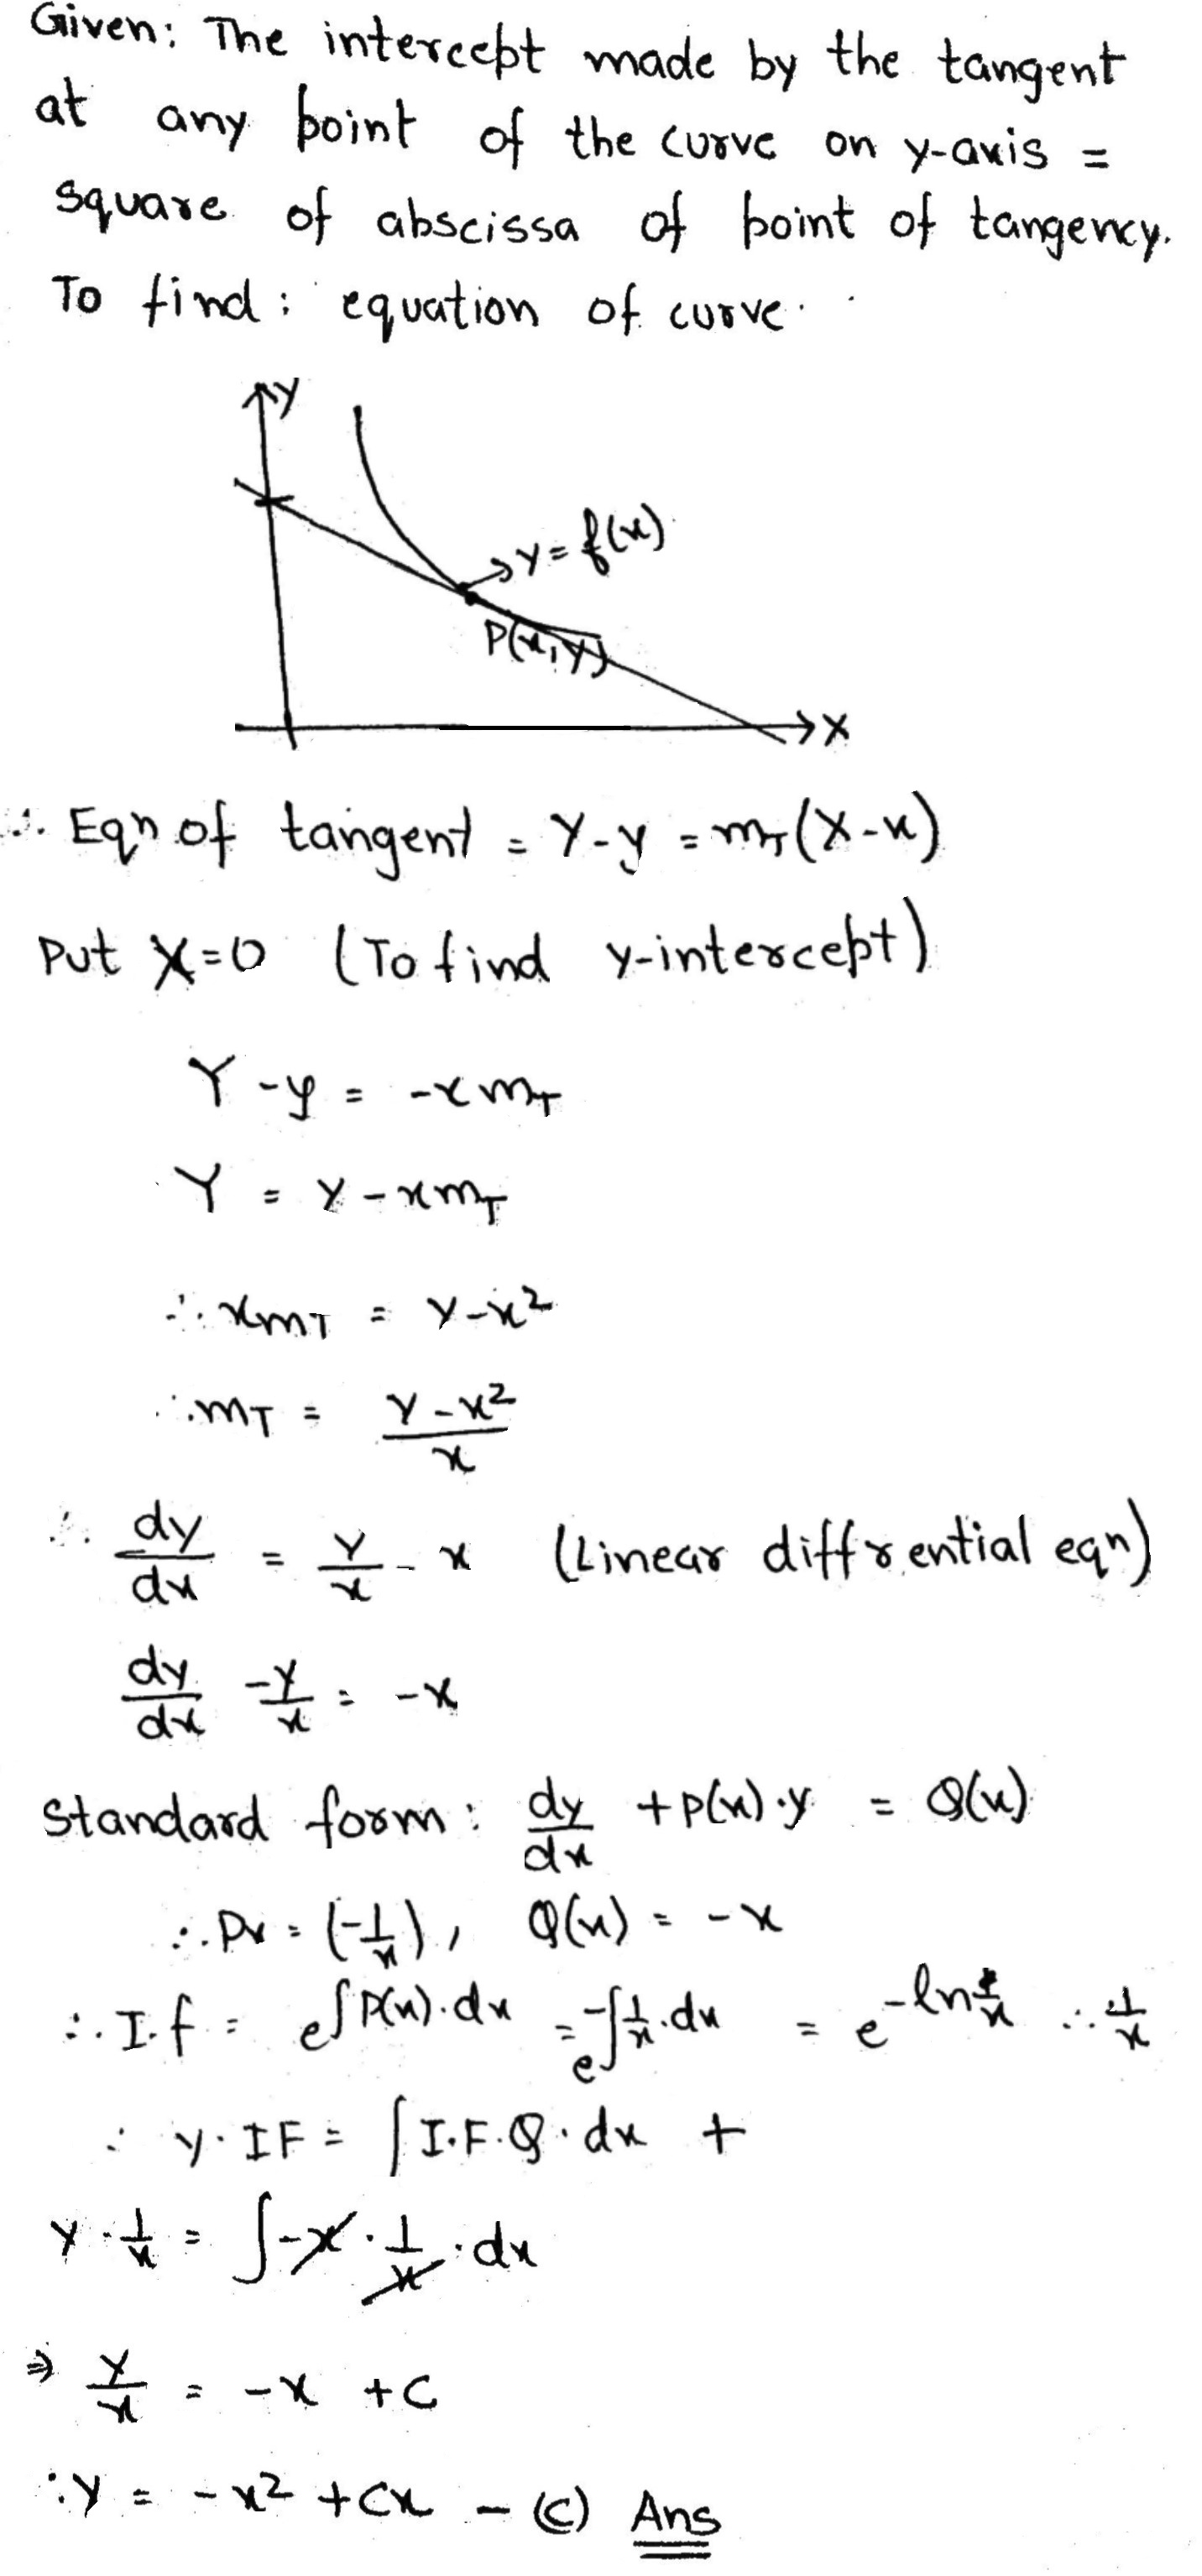 Given: The intercept made by the tangent
at any point of the curve on y-axis =
square of abscissa of point of tangency.
To find: equation of curve.
Y
y = f(x)
P(x,y)
X
∴ Eqn of tangent = Y-y = mT(X-x)
Put X=0 (To find y-intercept)
Y-y = -xmT
Y = y-xmT
∴ xmT = y-x²
∴ mT = (y-x²)/x
∴ dy/dx = y/x - x (Linear diffrential eqn)
dy/dx -y/x = -x
Standard form: dy/dx +p(x)·y = Q(x)
∴ Px = (-1/x), Q(x) = -x
∴ I.f = e^∫P(x).dx = e^-∫1/x.dx = e^-ln x ∴ 1/x
∴ y·IF = ∫I.F.Q.dx +
y·1/x = ∫-x·1/x·dx
⇒ y/x = -x +C
∴ y = -x²+Cx - (C) Ans